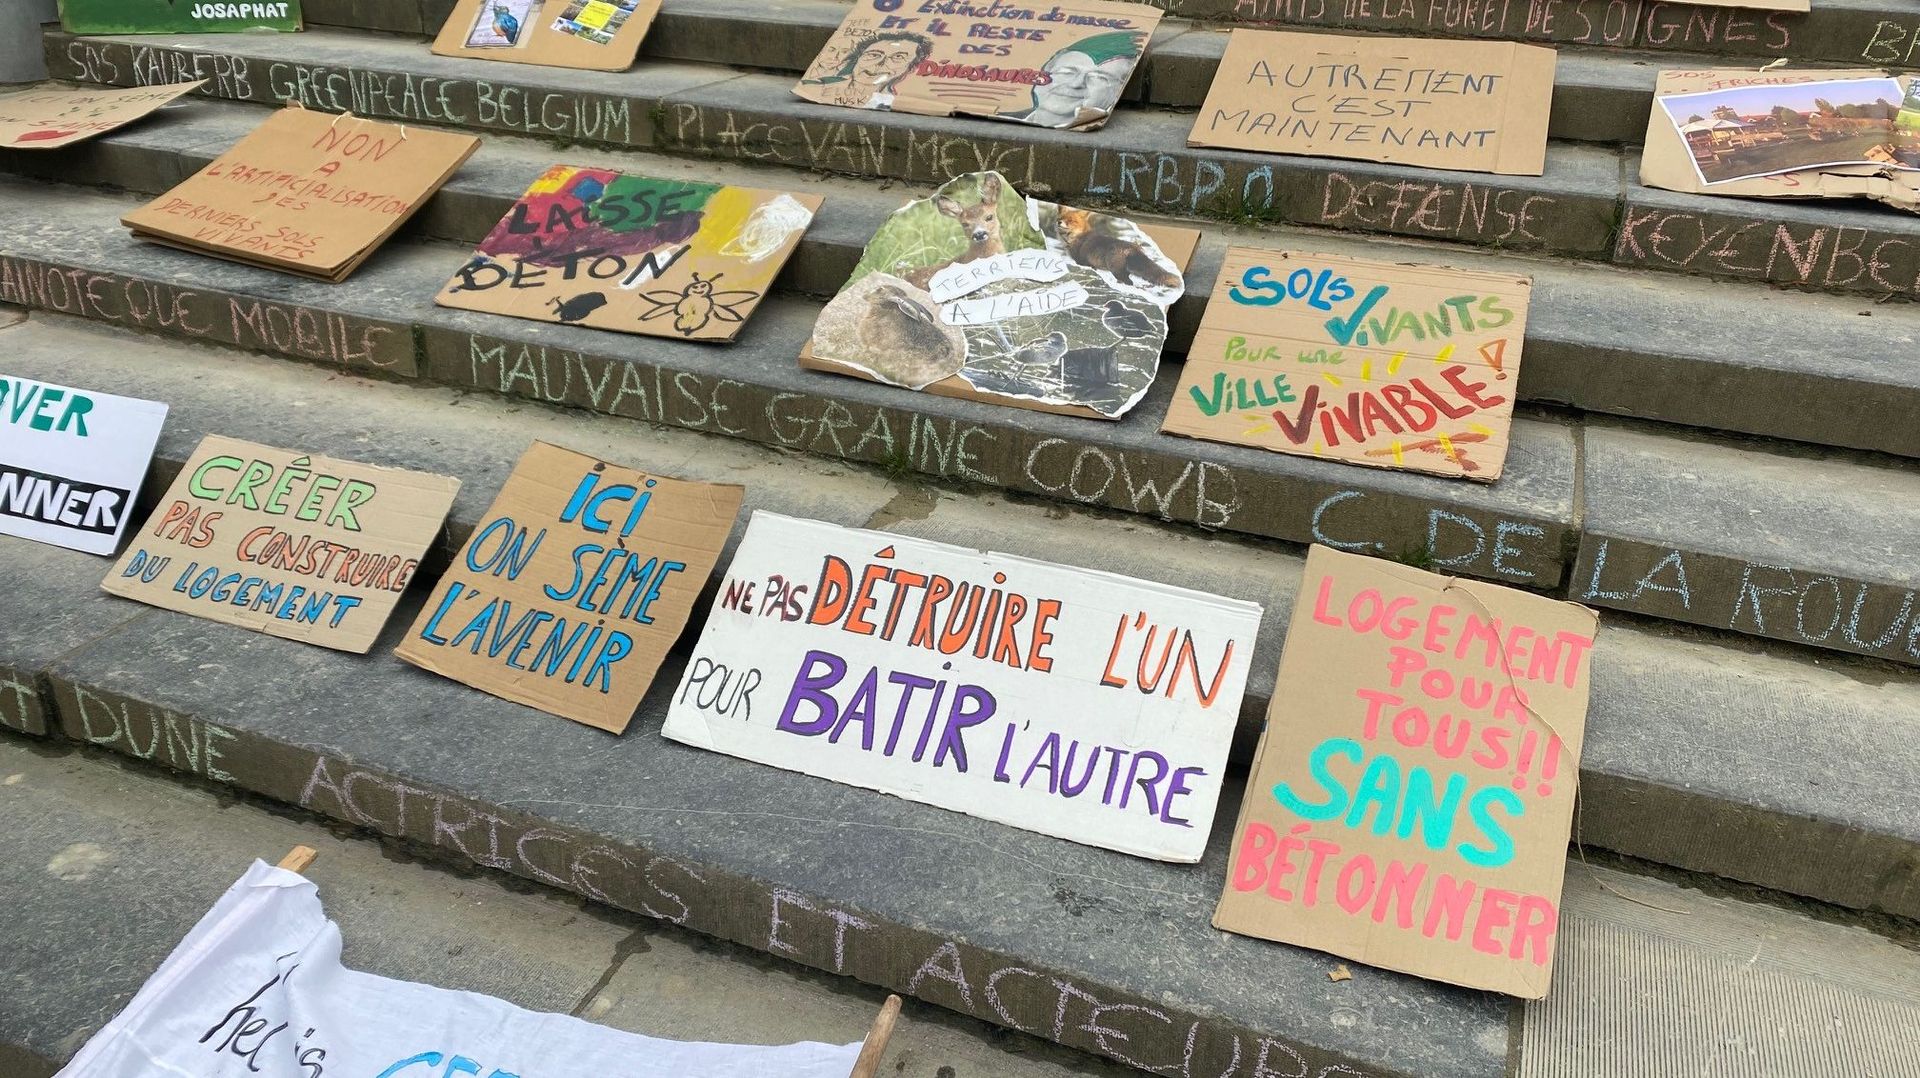 JOSAPHAT
SOS KAUBERB GREENPEACE BELGIUM
PLACE VAN MEYEL LRBPO DEFENSE
AMIS DE LA FORÊT DE SOIGNES
Extinction de masse
ET IL RESTE
DES
DINOSAURES
JEFF
BEZOS
ELON
MUSK
AUTREMENT
C'EST
MAINTENANT
SOS
FRICHES
KEYENBE
NON
A
L'ARTIFICIALISATION
DES
DERNIERS SOLS
VIVANTS
LAISSE
BÉTON
TERRIENS
A L'AIDE
SOLS
VIVANTS
POUR UNE
VILLE
VIVABLE!
AINOTE QUE MOBILE
MAUVAISE GRAINE COWB C. DE LA ROUE
OVER
NNER
CRÉER
PAS CONSTRUIRE
DU LOGEMENT
ICI
ON SÈME
L'AVENIR
NE PAS DÉTRUIRE L'UN
POUR BATIR L'AUTRE
LOGEMENT
POUR
TOUS!!
SANS
BÉTONNER
T DUNE
ACTRICES ET ACTEURS